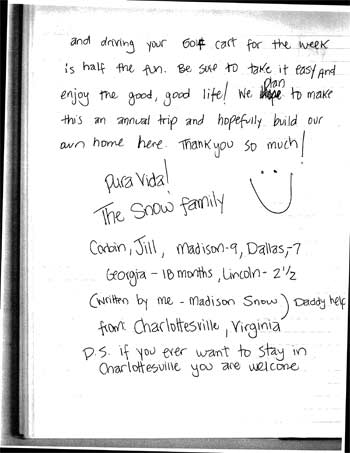 and driving your golf cart for the week
is half the fun. Be sure to take it easy and
enjoy the good, good life! We plan to make
this an annual trip and hopefully build our
own home here. Thank you so much!
Pura Vida!
The Snow family
Corbin, Jill, Madison-9, Dallas,-7
Georgia - 18 months, Lincoln - 2 1/2
(written by me - Madison Snow) Daddy help
from Charlottesville, Virginia
P.S. if you ever want to stay in
Charlottesville you are welcome